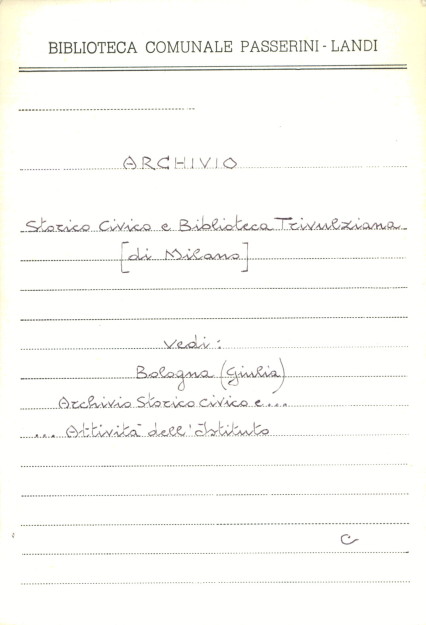 BIBLIOTECA COMUNALE PASSERINI - LANDI
ARCHIVIO
Storico Civico e Biblioteca Trivulziana
[di Milano]
Vedi:
Bologna (Giulia)
Archivio Storico Civico e...
... Attività dell'Istituto
C